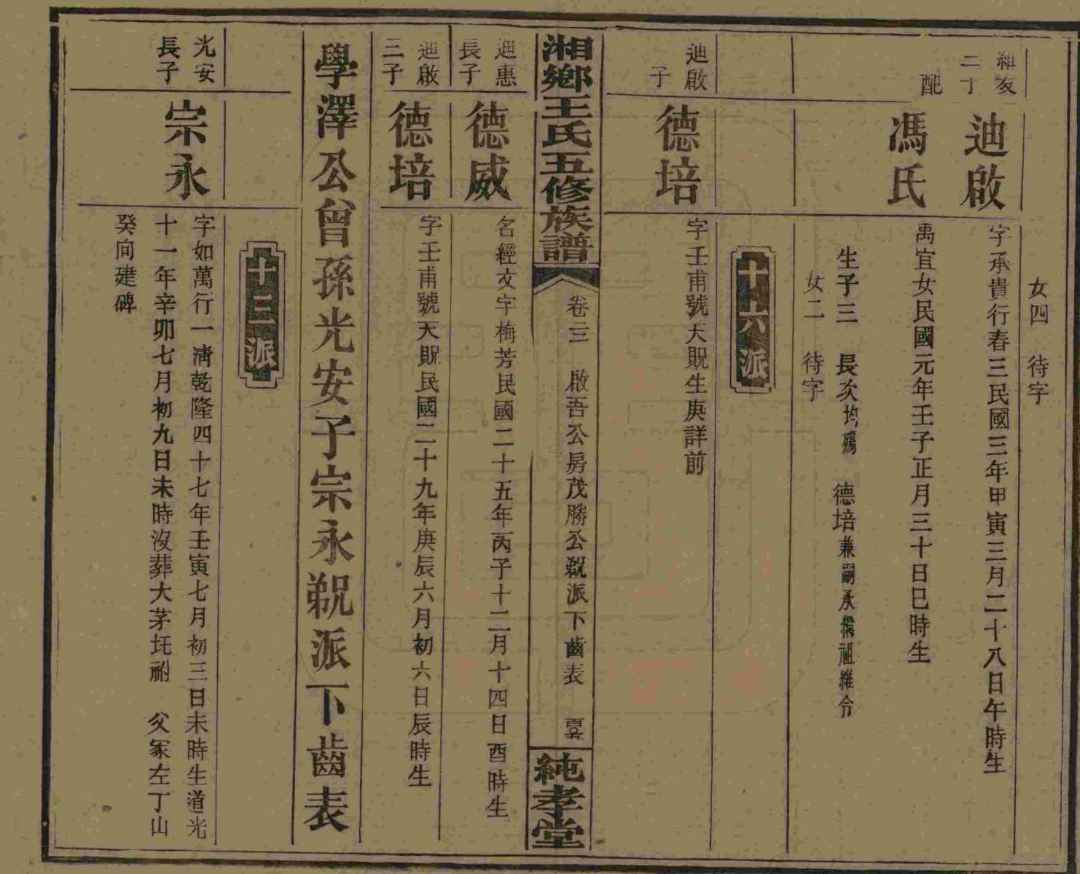 女四　待字
二子
迪啟
字承貴行春三民國三年甲寅三月二十八日午時生
配
馮氏
禹宜女民國元年壬子正月三十日巳時生
生子三　長次均殤　德培兼嗣承
女二　待字
十六派
迪啟
子
德培
字壬甫號天貺生庚詳前
湘鄉王氏五修族譜
卷三三　啟吾公房茂勝公𧥺派下齒表
純孝堂
迪惠
長子
德威
名經文字梅芳民國二十五年丙子十二月十四日酉時生
迪啟
三子
德培
字壬甫號天貺民國二十九年庚辰六月初六日辰時生
學澤公曾孫光安子宗永𧥺派下齒表
十三派
光安
長子
宗永
字如萬行一清乾隆四十七年壬寅七月初三日未時生道光
十一年辛卯七月初九日未時沒葬大茅坵祔　父冢左丁山
癸向建碑